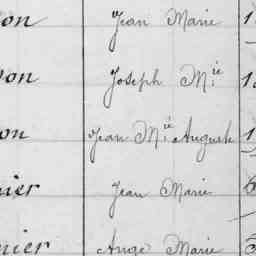 on Jean Marie 1
on Joseph M.ie 1
on Jean M.ie Auguste 1
nier Jean Marie
nier Ange Marie